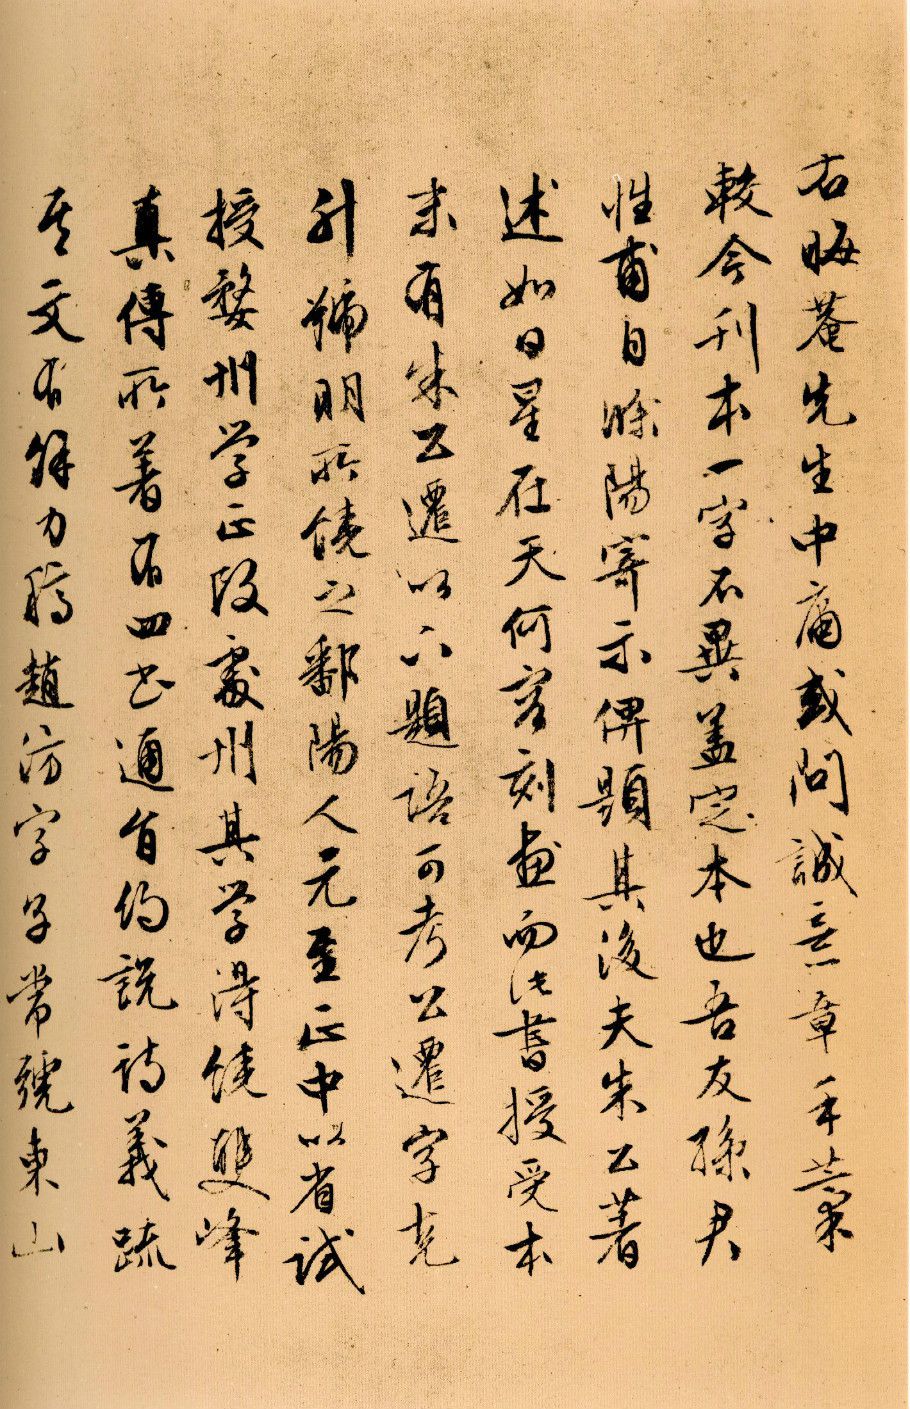 右晦菴先生中庸或問誠意章手藁
較今刊本一字不異蓋定本也吾友孫君
性甫自滁陽寄示俾題其後夫朱公著
述如日星在天何容刻畫而法書授受本
末有朱公遷以下題語可考公遷字克
升號明所饒之鄱陽人元至正中以省試
授婺州学正改處州其学得饒雙峰
真傳所著有四書通旨約說詩義疏
其文有餘力藁趙汸字子常號東山